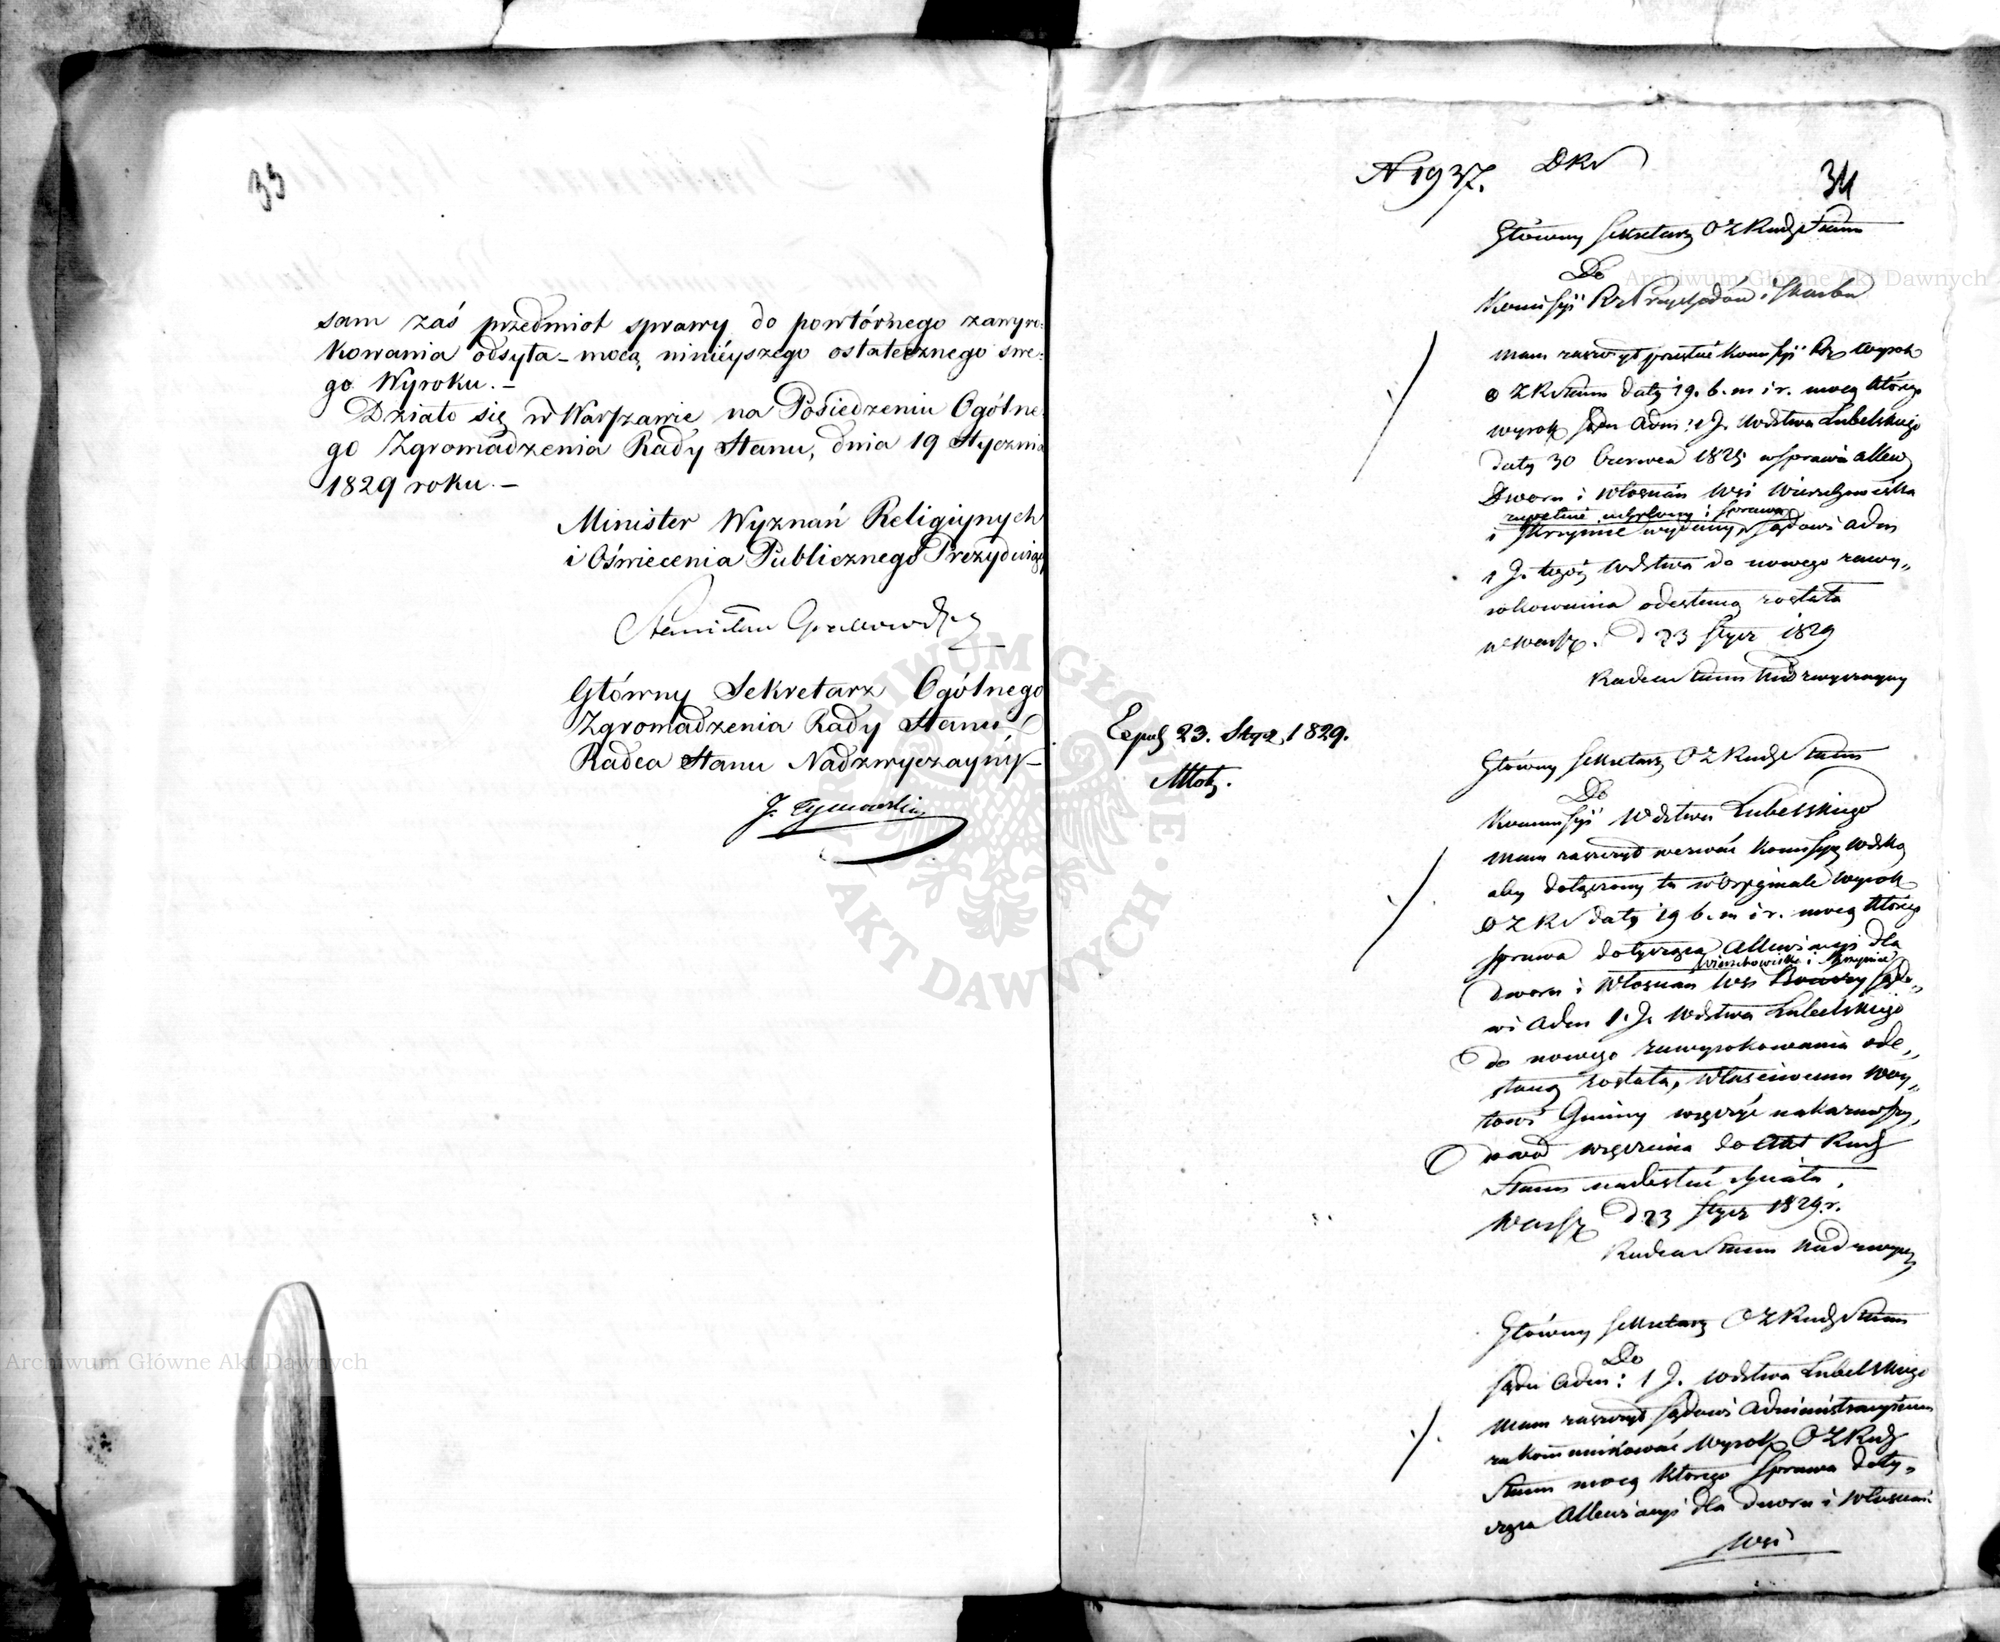 33
sam zaś przedmiot sprawy do powtórnego zawyro=
kowania odsyła – mocą ninieyszego ostatecznego swe=
go Wyroku. –
Działo się w Warszawie na Posiedzeniu Ogólne=
go Zgromadzenia Rady Stanu, dnia 19 Stycznia
1829 roku. –
Minister Wyznań Religiynych
i Oświecenia Publicznego Prezyduiący
Stanisław Grabowski
Główny Sekretarz Ogólnego
Zgromadzenia Rady Stanu
Radca Stanu Nadzwyczayny –
J. Tymowski
N 1937.
34
Główny Sekretarz OZ Rady Stanu
Do
Kommissyi Rz Przychodów i Skarbu
Mam zaszczyt przesłać Kommissyi Rz Wyrok
OZRStanu daty 19. b. m i r. mocą którego
wyrok Sądu Adm: 1 J. Wdztwa Lubelskiego
daty 30 Czerwca 1825 w sprawie allew
Dworu i Włościan Wsi Wierzchowiska
zupełnie uchylony i sprawa
i Skrzynice Sądowi Adm
1 J. tegoż Wdztwa do nowego zawy„
rokowania odesłaną została
w Warsz. d 23 Stycz 1829
Radca Stanu Nadzwyczayny
Expd 23. Stycz. 1829.
Główny Sekretarz OZ Rady Stanu
Do
Kommissyi Wdztwa Lubelskiego
Mam zaszczyt wezwać Kommissyą Wdzką
aby dołączony tu w Oryginale wyrok
OZRS daty 19 b. m i r. mocą którego
sprawa dotycząca Allewiacyi dla
Wierzchowiska i Skrzynice
dworu i Włościan Wsi Sądo„
wi Adm 1. J. Wdztwa Lubelskiego
do nowego zawyrokowania ode„
słaną została, właściwemu Woy„
towi Gminy wręczyć nakazawszy,
dowód wręczenia do Akt Rady
Stanu nadesłać chciała.
Warsz d 23 Stycz 1829 r.
Radca Stanu Nadzwycz
Główny Sekretarz OZ Rady Stanu
Do
Sądu Adm: 1 J. Wdztwa Lubelskiego
Mam zaszczyt Sądowi Administracyinemu
zakommunikować Wyrok OZ Rady
Stanu mocą którego Sprawa doty„
cząca Allewiacyi dla dworu i Włościan
Wsi
Archiwum Główne Akt Dawnych
Archiwum Główne Akt Dawnych
ARCHIWUM GŁÓWNE · AKT DAWNYCH ·